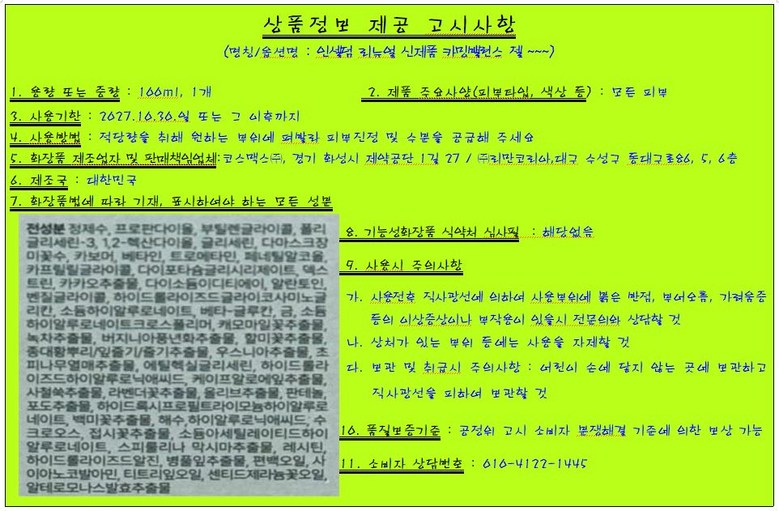 상품정보 제공 고시사항
(명칭/옵션명 : 인셀덤 리뉴얼 신제품 카밍밸런스 젤 ~~~)
1. 용량 또는 중량 : 100ml, 1개
2. 제품 주요사양(피부타입, 색상 등) : 모든 피부
3. 사용기한 : 2027.10.30.일 또는 그 이후까지
4. 사용방법 : 적당량을 취해 원하는 부위에 펴발라 피부진정 및 수분을 공급해 주세요
5. 화장품 제조업자 및 판매책임업체:코스맥스㈜, 경기 화성시 제약공단 1길 27 / ㈜리만코리아,대구 수성구 동대구로86, 5, 6층
6. 제조국 : 대한민국
7. 화장품법에 따라 기재, 표시하여야 하는 모든 성분
전성분 정제수, 프로판다이올, 부틸렌글라이콜, 폴리
글리세린-3, 1,2-헥산다이올, 글리세린, 다마스크장
미꽃수, 카보머, 베타인, 트로메타민, 페네틸알코올,
카프릴릴글라이콜, 다이포타슘글리시리제이트, 덱스
트린, 카카오추출물, 다이소듐이디티에이, 알란토인,
벤질글라이콜, 하이드롤라이즈드글라이코사미노글
리칸, 소듐하이알루로네이트, 베타-글루칸, 금, 소듐
하이알루로네이트크로스폴리머, 캐모마일꽃추출물,
녹차추출물, 버지니아풍년화추출물, 할미꽃추출물,
종대황뿌리/잎줄기/줄기추출물, 우스니아추출물, 초
피나무열매추출물, 에틸헥실글리세린, 하이드롤라
이즈드하이알루로닉애씨드, 케이프알로에잎추출물,
사철쑥추출물, 라벤더꽃추출물, 올리브추출물, 판테놀,
포도추출물, 하이드록시프로필트라이모늄하이알루로
네이트, 백미꽃추출물, 해수,하이알루로닉애씨드, 수
크로오스, 접시꽃추출물, 소듐아세틸레이티드하이
알루로네이트, 스피룰리나 막시마추출물, 레시틴,
하이드롤라이즈드알진, 병풀잎추출물, 편백오일, 사
이아노코발아민, 티트리잎오일, 센티드제라늄꽃오일,
알테로모나스발효추출물
8. 기능성화장품 식약처 심사필 : 해당없음
9. 사용시 주의사항
가. 사용전후 직사광선에 의하여 사용부위에 붉은 반점, 부어오름, 가려움증
등의 이상증상이나 부작용이 있을시 전문의와 상담할 것
나. 상처가 있는 부위 등에는 사용을 자제할 것
다. 보관 및 취급시 주의사항 : 어린이 손에 닿지 않는 곳에 보관하고
직사광선을 피하여 보관할 것
10. 품질보증기준 : 공정위 고시 소비자 분쟁해결 기준에 의한 보상 가능
11. 소비자 상담번호 : 010-4122-1445